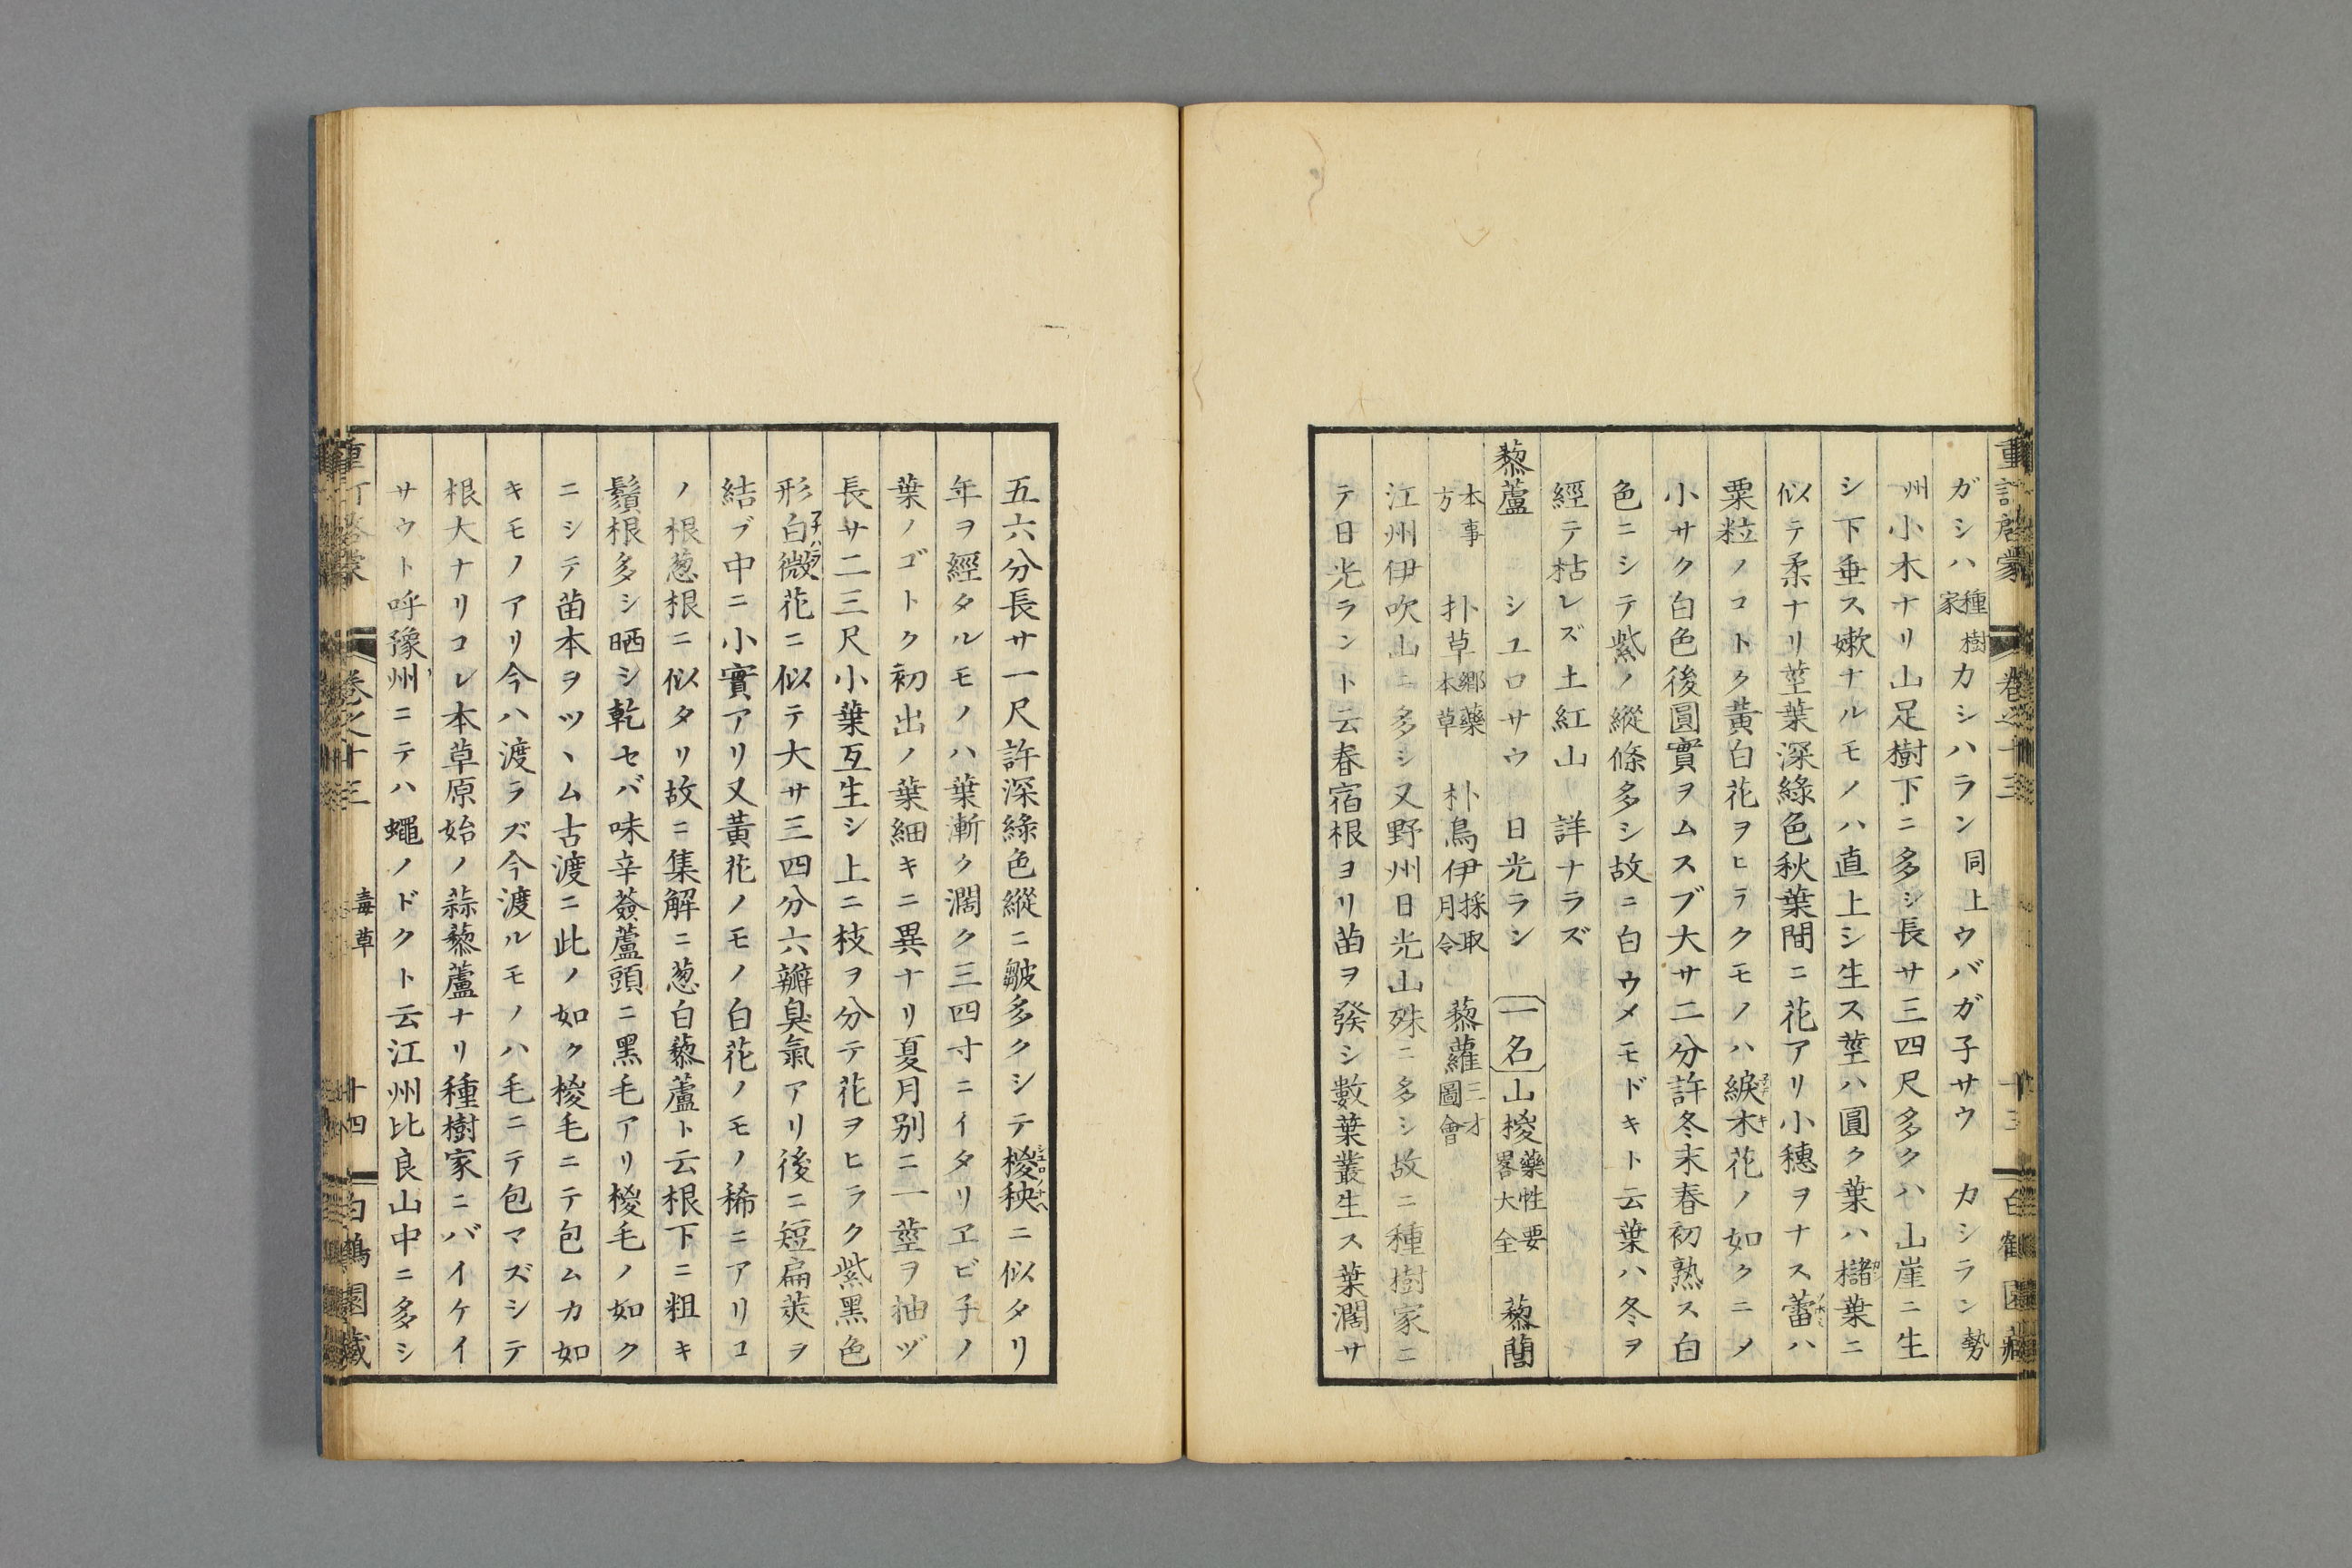 重訂啓蒙 卷之十三 十三 白鶴園藏
ガシハ種樹家カシハラン同上ウバガ子サウ カシラン勢
州小木ナリ山足樹下ニ多シ長サ三四尺多クハ山崖ニ生
シ下垂ス嫰ナルモノハ直上シ生ス莖ハ圓ク葉ハ櫧葉ニ
似テ柔ナリ莖葉深綠色秋葉間ニ花アリ小穗ヲナス蕾ハ
粟粒ノコトク黃白花ヲヒラクモノハ綟木花ノ如クニメ
小サク白色後圓實ヲムスブ大サ二分許冬末春初熟ス白
色ニシテ紫ノ縱條多シ故ニ白ウメモドキト云葉ハ冬ヲ
經テ枯レズ土紅山 詳ナラズ
藜蘆 シユロサウ 日光ラン 一名 山椶藥性要畧大全 藜蘭
本事方 扑草鄉藥本草 朴鳥伊採取月令 藜蘿三才圖會
江州伊吹山ニ多シ又野州日光山殊ニ多シ故ニ種樹家ニ
テ日光ラント云春宿根ヨリ苗ヲ發シ數葉叢生ス葉濶サ
五六分長サ一尺許深綠色縱ニ皺多クシテ椶秧ニ似タリ
年ヲ經タルモノハ葉漸ク濶ク三四寸ニイタリヱビ子ノ
葉ノゴトク初出ノ葉細キニ異ナリ夏月別ニ一莖ヲ抽ヅ
長サ二三尺小葉互生シ上ニ枝ヲ分テ花ヲヒラク紫黑色
形白微花ニ似テ大サ三四分六瓣臭氣アリ後ニ短扁莢ヲ
結ブ中ニ小實アリ又黃花ノモノ白花ノモノ稀ニアリコ
ノ根葱根ニ似タリ故ニ集解ニ葱白藜蘆ト云根下ニ粗キ
鬚根多シ晒シ乾セバ味辛薟蘆頭ニ黑毛アリ椶毛ノ如ク
ニシテ苗本ヲツヽム古渡ニ此ノ如ク椶毛ニテ包ムカ如
キモノアリ今ハ渡ラズ今渡ルモノハ毛ニテ包マズシテ
根大ナリコレ本草原始ノ蒜藜蘆ナリ種樹家ニバイケイ
サウト呼豫州ニテハ蠅ノドクト云江州比良山中ニ多シ
重訂啓蒙 卷之十三 毒草 十四 白鶴園藏